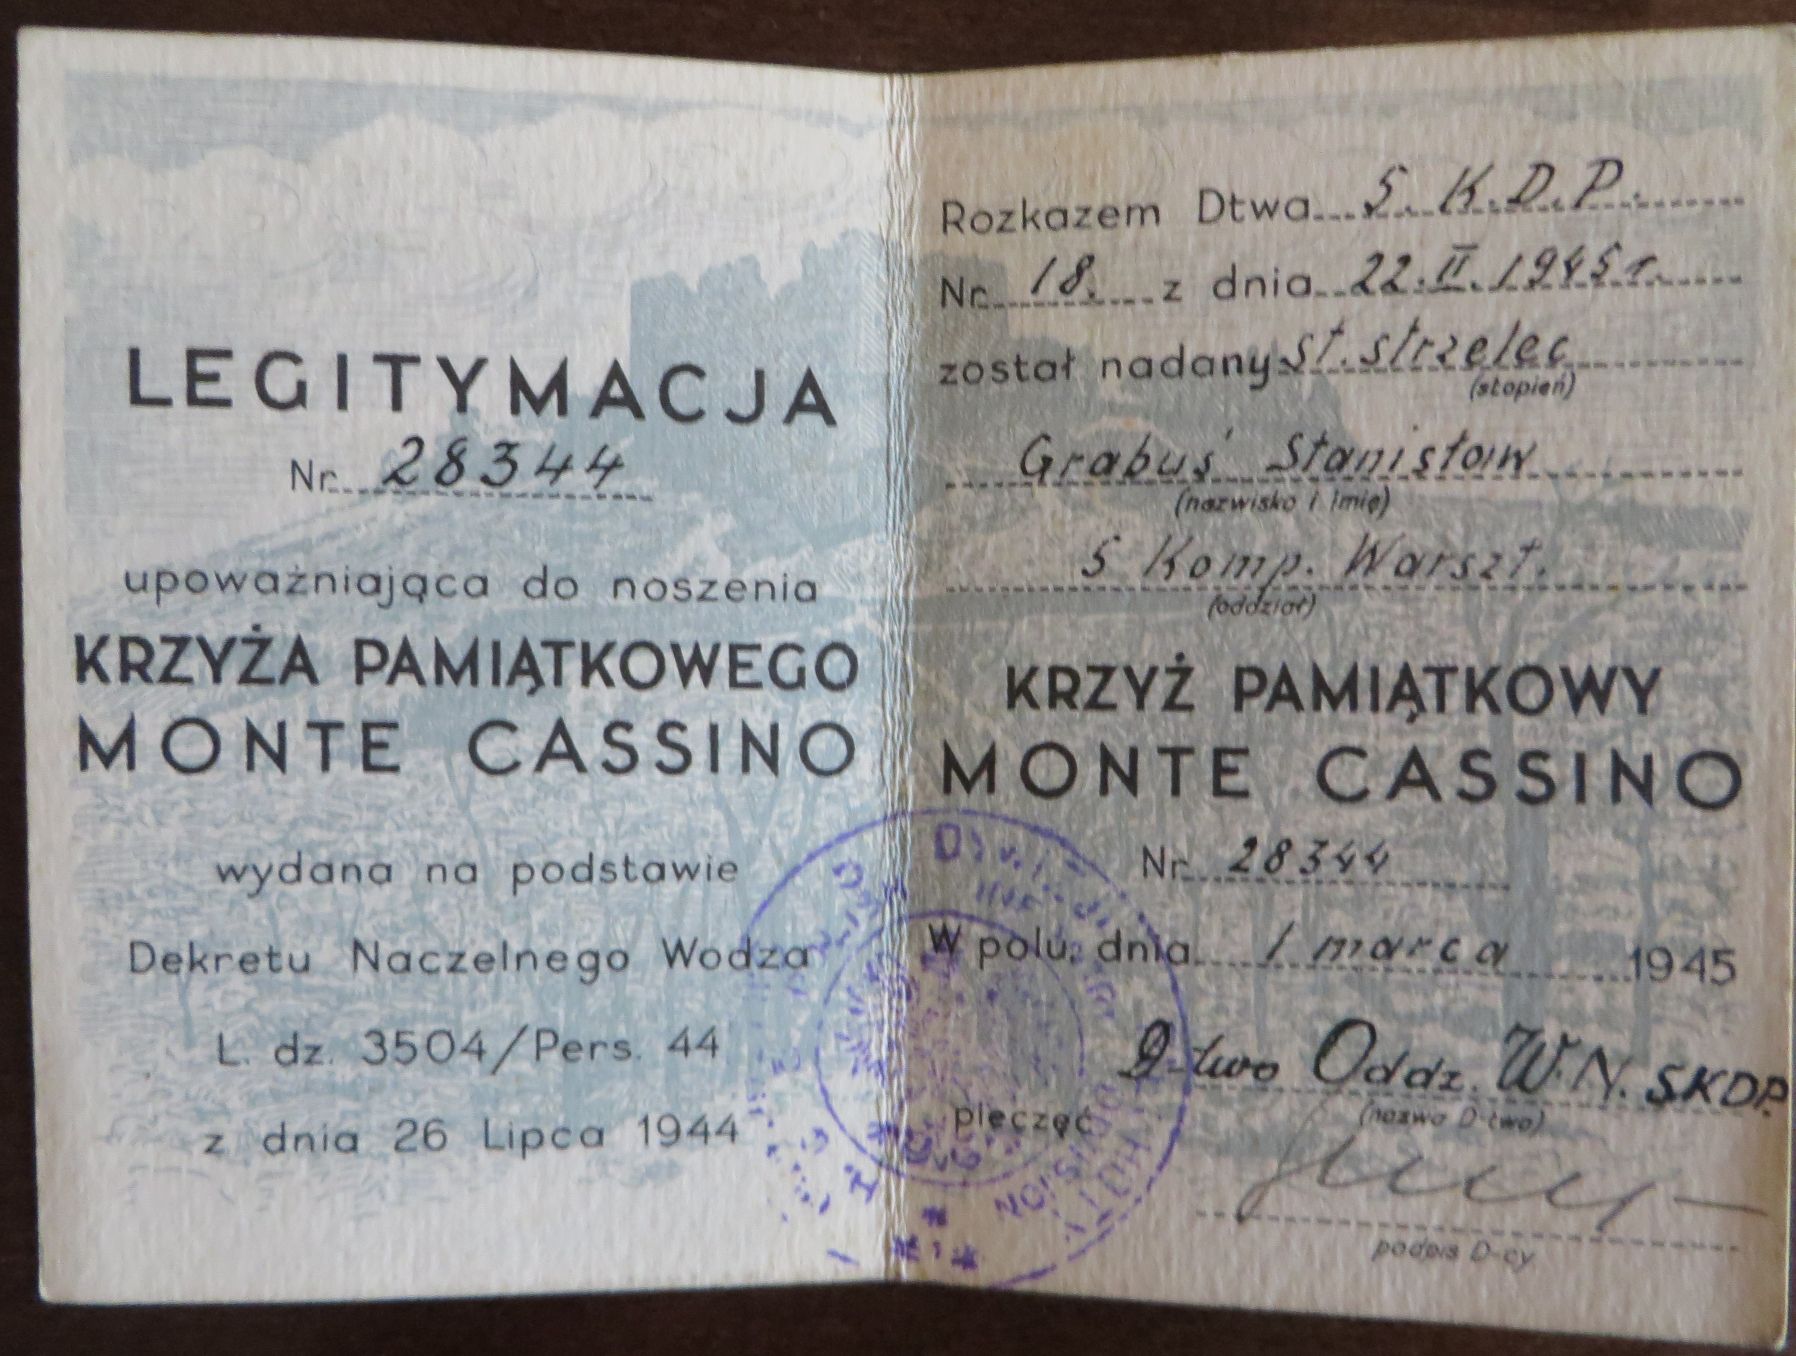 LEGITYMACJA
Nr. 28344
upoważniająca do noszenia
KRZYŻA PAMIĄTKOWEGO
MONTE CASSINO
wydana na podstawie
Dekretu Naczelnego Wodza
L. dz. 3504/Pers. 44
z dnia 26 Lipca 1944
Rozkazem Dtwa 5. K.D.P.
Nr. 18. z dnia 22.II.1945 r.
został nadany st. strzelec
(stopień)
Grabuś Stanisław
(nazwisko i imię)
5 Komp. Warszt.
(oddział)
KRZYŻ PAMIĄTKOWY
MONTE CASSINO
Nr. 28344
W polu, dnia 1 marca 1945
D-two Oddz. W.N. 5KDP.
(nazwa D-twa)
pieczęć
podpis D-cy